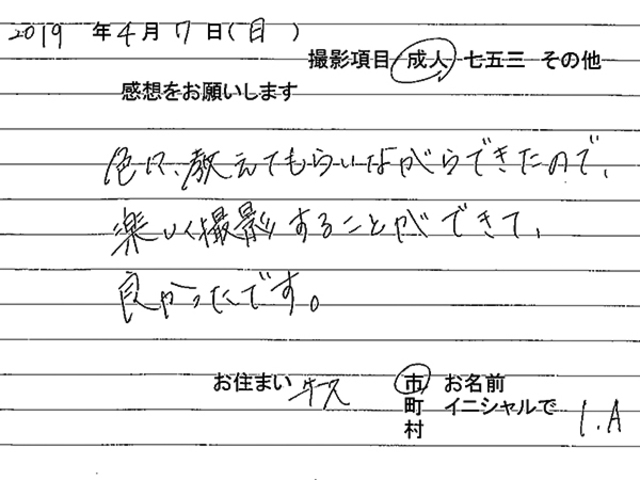 2019 年 4 月 7 日(日)
撮影項目 成人 七五三 その他
感想をお願いします
色々、教えてもらいながらできたので、
楽しく撮影することができて、
良かったです。
お住まい 市 お名前
町 イニシャルで I.A
村